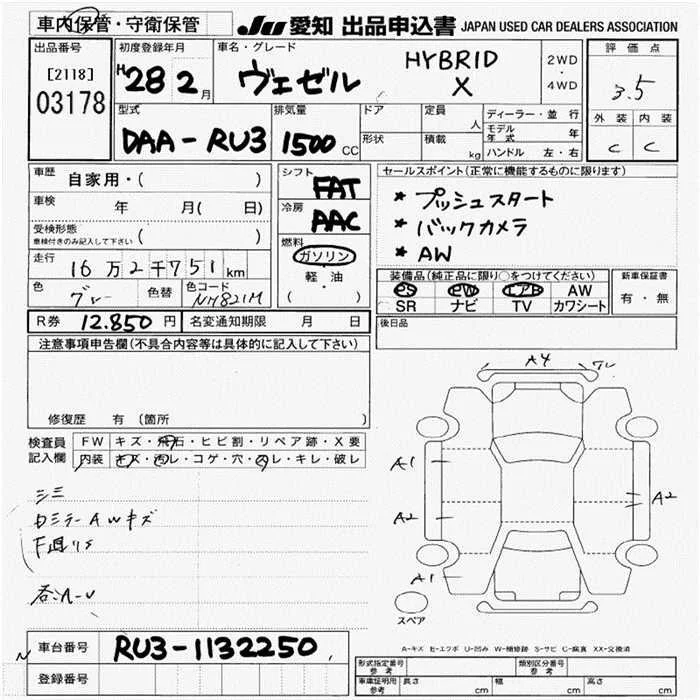 車内保管・守衛保管
JU 愛知 出品申込書 JAPAN USED CAR DEALERS ASSOCIATION
出品番号
[2118]
03178
初度登録年月
H28 2月
車名・グレード
ヴェゼル
HYBRID
X
2WD
・
4WD
評価点
3.5
外装 内装
C C
型式
DAA-RU3
排気量
1500 CC
ドア
形状
定員 人
積載 kg
ディーラー・並行
モデル年式 年
ハンドル 左・右
車歴 自家用・( )
車検 年 月( 日)
受検形態
車検付きのみ記入して下さい ( )
走行 16万2千751km
色 グレー 色替 色コード NH821M
シフト FAT
冷房 AAC
燃料
ガソリン
軽・油
( )
セールスポイント(正常に機能するものに限ります)
* プッシュスタート
* バックカメラ
* AW
装備品(純正品に限り○をつけてください)
PS PW エアB AW
SR ナビ TV カワシート
新車保証書
有・無
R券 12.850 円 名変通知期限 月 日
後日品
注意事項申告欄(不具合内容等は具体的に記入して下さい)
修復歴 有 (箇所 )
検査員記入欄
FW キズ・飛石・ヒビ割・リペア跡・X要
内装 キズ・汚レ・コゲ・穴・スレ・キレ・破レ
A4
A1
A2
A2
A1
スペア
A-キズ E-エクボ U-凹み W-補修跡 S-サビ C-腐食 XX-交換済
車台番号 RU3-1132250
登録番号
形式指定番号 参考
類別区分番号 参考
車庫証明用 参考 長さ cm 幅 cm 高さ cm